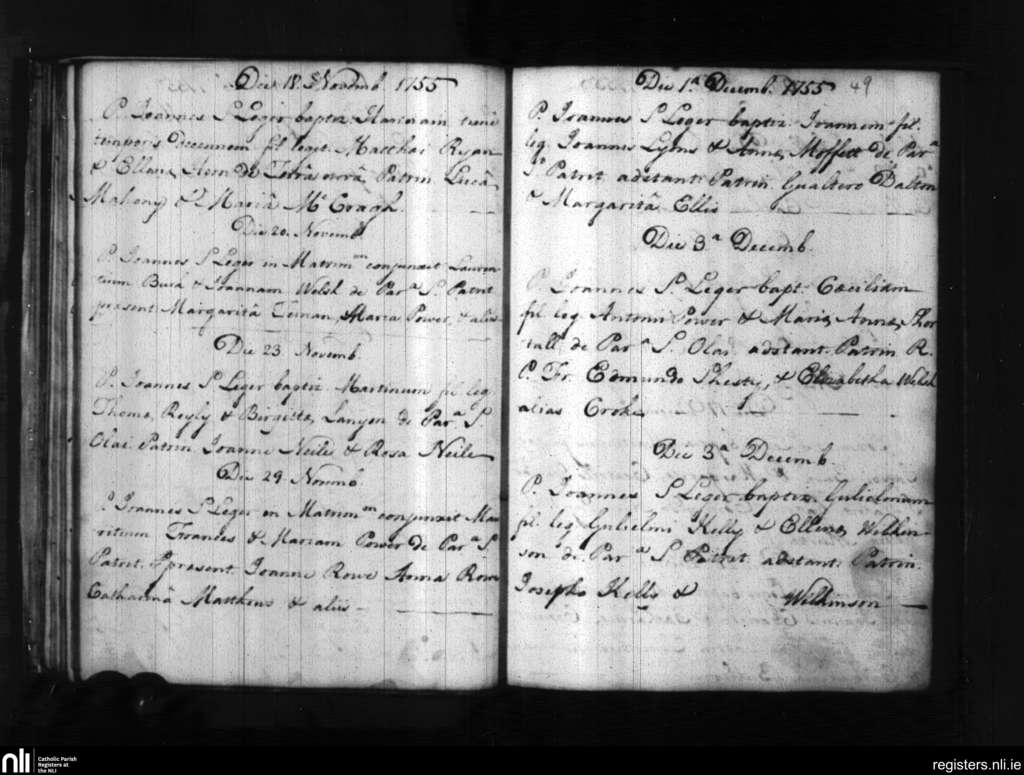 Die 18. Novemb. 1755
P. Joannes S Leger baptiz. Mariam trini
temporis decennem fil. legit. Matthai Ryan
& Ellena Hern de Terra nova Patrin. Lucâ
Mahony & Mariâ Mc. Cragh.
Die 20. Novemb.
P. Joannes S Leger in Matrimm conjunxit Lauren
tium Burk & Joannam Welsh de Para S. Patrit
present Margaritâ Ternan, Maria Power, & aliis
Die 23. Novemb.
P. Joannes S Leger baptiz. Martinum fil. leg.
Thoma Reyly & Birgitta Lanyon de Para S.
Olai. Patrin Joanne Neile & Rosa Neile
Die 29. Novemb.
P. Joannes S Leger in Matrimm conjunxit Mau
ritium Frances & Mariam Power de Para S
Patrit. present. Joanne Rowe Anna Rowe
Catharinâ Matthews & aliis
Die 1a Decemb. 1755 49
P. Joannes S Leger baptiz Joannem fil.
leg. Joannis Lyons & Anna Moffett de Para
S. Patrit adstant. Patrin. Gualtero Dalton
& Margaritâ Ellis
Die 3a Decemb.
P. Joannes S. Leger bapt. Cæciliam
fil leg Antonii Power & Maria Anna Shor
tall de Para S. Olai adstant. Patrin R.
P. Fr. Edmundo & Elizabetha Welsh
alias Croke
Die 3a Decemb.
P. Joannes S Leger baptiz. Gulielmum
fil. leg Gulielmi Kelly & Ellena Wilkin
son de Para S. Patrit adstant. Patrin.
Josepho Kelly & Wilkinson
nli Catholic Parish
Registers at
the NLI
registers.nli.ie